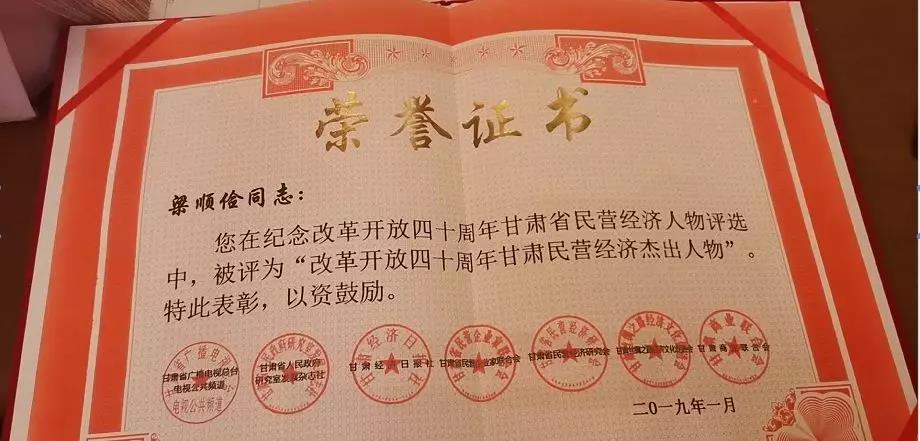 荣誉证书
梁顺俭同志：
您在纪念改革开放四十周年甘肃省民营经济人物评选
中，被评为“改革开放四十周年甘肃民营经济杰出人物”。
特此表彰，以资鼓励。
甘肃省广播电视总台
电视公共频道
电视公共频道
甘肃省人民政府
研究室发展杂志社
甘肃经济日报社
甘肃省民营企业家联合会
甘肃省民营经济研究会
甘肃丝绸之路经济文化促进会
甘肃商业联合会
二〇一九年一月